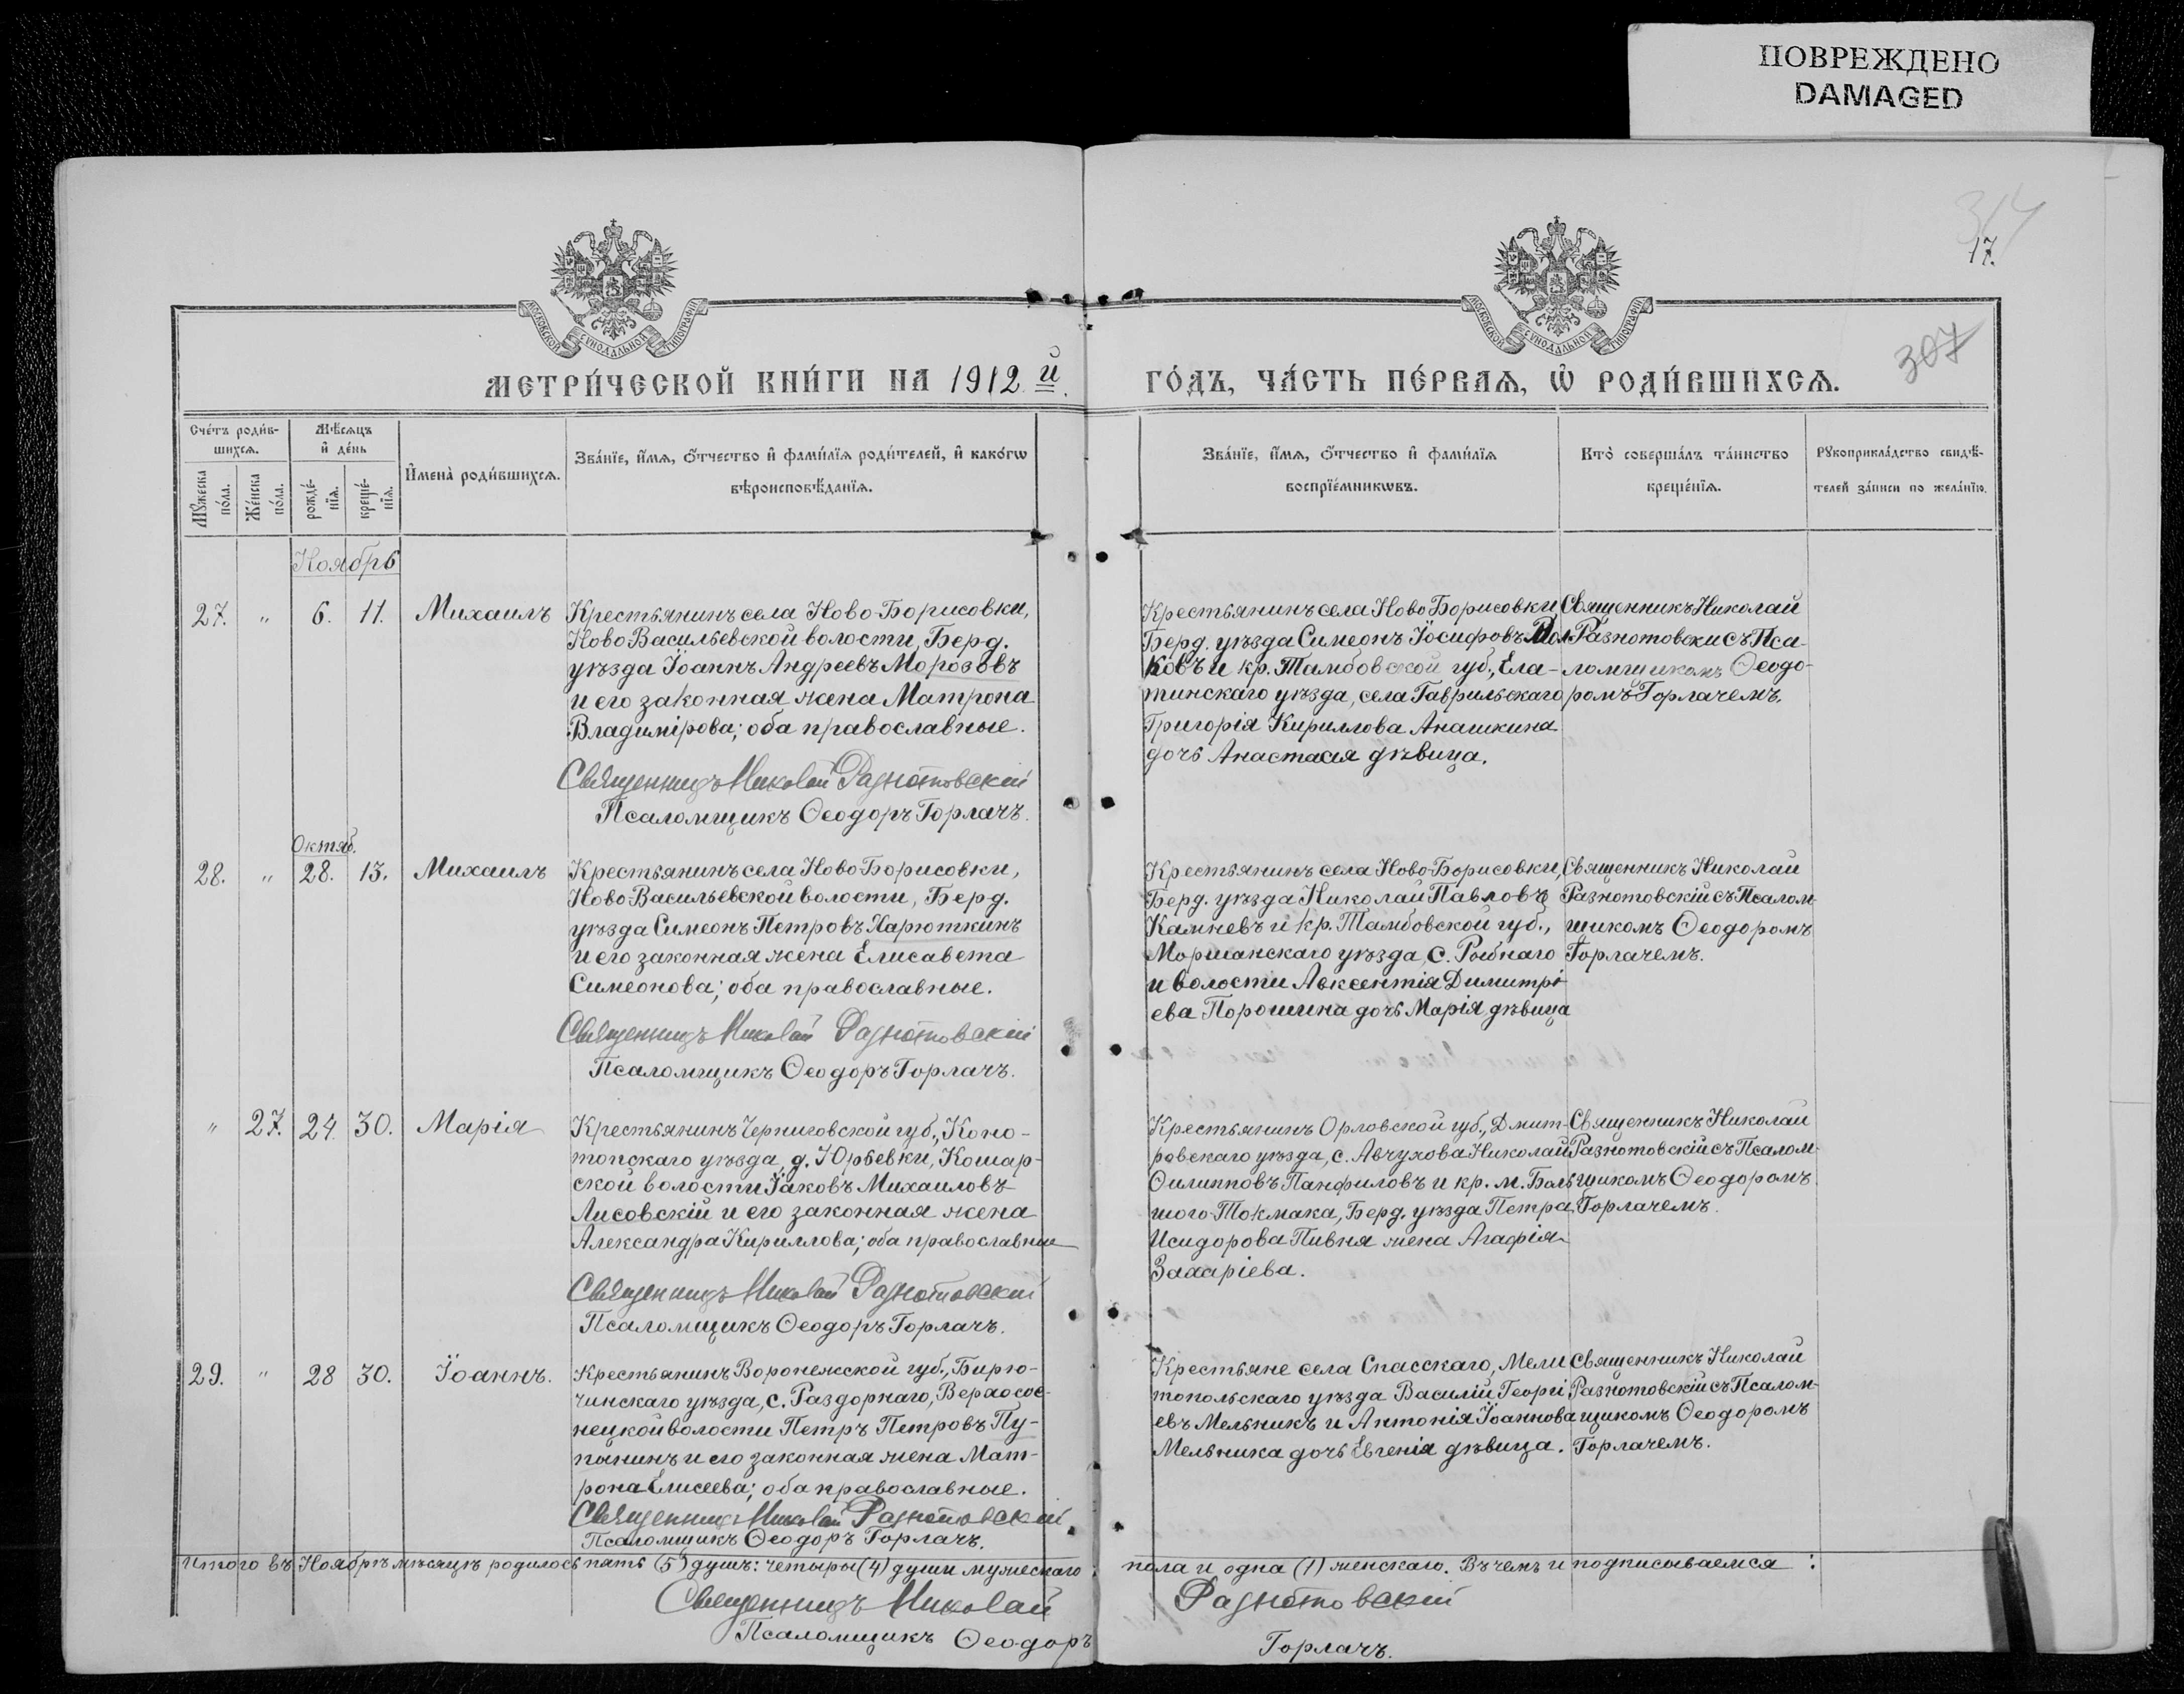 ПОВРЕЖДЕНО
DAMAGED
17.
307
МОСКОВСКОЙ СУНОДАЛЬНОЙ ТИПОГРАФІИ
МОСКОВСКОЙ СУНОДАЛЬНОЙ ТИПОГРАФІИ
МЕТРИ́ЧЕСКОЙ КНИ́ГИ НА 1912 й.
ГО́ДЪ, ЧА́СТЬ ПЕ́РВАѦ, Ѡ҆ РОДИ́ВШИХСѦ.
Сче́тъ роди́в-
шихсѧ.
Мꙋжеска по́ла.
Же́нска по́ла.
Мѣ́сѧцъ
и҆ де́нь
рожде́-
нїѧ.
креще́-
нїѧ.
И҆мена̀ роди́вшихсѧ.
Зва́нїе, и҆́мѧ, ѻ҆́тчество и҆ фами́лїѧ роди́телей, и҆ како́гѡ
вѣроисповѣ́данїѧ.
Зва́нїе, и҆́мѧ, ѻ҆́тчество и҆ фами́лїѧ
воспрїе́мникѡвъ.
Кто̀ соверша́лъ та́инство
креще́нїѧ.
Рꙋкоприкла́дство свидѣ́-
телей за́писи по жела́нїю.
Ноябрь
27. " 6. 11. Михаилъ
Крестьянинъ села Ново-Борисовки,
Ново-Васильевской волости, Берд.
уѣзда Іоаннъ Андреевъ Морозовъ
и его законная жена Матрона
Владимірова; оба православные.
Священникъ Николай Разнотовскій
Псаломщикъ Ѳеодоръ Горлачъ.
Крестьянинъ села Ново Борисовки,
Берд. уѣзда Симеонъ Іосифовъ Пол
ковъ и кр. Тамбовской губ., Ела-
тинскаго уѣзда, села Гаврильскаго
Григорія Кириллова Анашкина
дочь Анастасія дѣвица.
Священникъ Николай
Разнотовски съ Пса-
ломщикомъ Ѳеодо-
ромъ Горлачемъ.
Октяб.
28. " 28. 13. Михаилъ
Крестьянинъ села Ново Борисовки,
Ново-Васильевской волости, Берд.
уѣзда Симеонъ Петровъ Харюткинъ
и его законная жена Елисавета
Симеонова; оба православные.
Священникъ Николай Разнотовскій
Псаломщикъ Ѳеодоръ Горлачъ.
Крестьянинъ села Ново-Борисовки,
Берд. уѣзда Николай Павловъ
Камневъ и кр. Тамбовской губ.,
Моршанскаго уѣзда, с. Рыбнаго
и волости Авксентія Димитрі
ева Порошина дочь Марія дѣвица
Священникъ Николай
Разнотовскій съ Псалом-
щикомъ Ѳеодоромъ
Горлачемъ.
" 27. 24. 30. Марія
Крестьянинъ Черниговской губ., Коно-
топскаго уѣзда, д. Юрьевки, Кошар-
ской волости Іаковъ Михаиловъ
Лисовскій и его законная жена
Александра Кириллова; оба православные
Священникъ Николай Разнотовскій
Псаломщикъ Ѳеодоръ Горлачъ.
Крестьянинъ Орловской губ., Дмит-
ровскаго уѣзда, с. Авчухова Николай
Филипповъ Панфиловъ и кр. м. Боль
шого-Токмака, Берд. уѣзда Петра
Исидорова Пивня жена Агафія
Захаріева.
Священникъ Николай
Разнотовскій съ Псалом-
щикомъ Ѳеодоромъ
Горлачемъ.
29. " 28 30. Іоаннъ.
Крестьянинъ Воронежской губ., Бирю-
чинскаго уѣзда, с. Раздорнаго, Верхосос-
нецкой волости Петръ Петровъ Пу-
пынинъ и его законная жена Мат-
рона Елисеева; оба православные.
Священникъ Николай Разнотовскій
Псаломщикъ Ѳеодоръ Горлачъ.
Крестьяне села Спасскаго, Мели
топольскаго уѣзда Василій Георгі
евъ Мельникъ и Антонія Іоаннова
Мельника дочь Евгенія дѣвица.
Священникъ Николай
Разнотовскій съ Псалом-
щикомъ Ѳеодоромъ
Горлачемъ.
Итого въ Ноябрѣ мѣсяцѣ родилось пять (5) душъ: четыры (4) души мужескаго пола и одна (1) женскаго. Въ чемъ и подписываемся:
Священникъ Николай Разнотовскій
Псаломщикъ Ѳеодоръ Горлачъ.